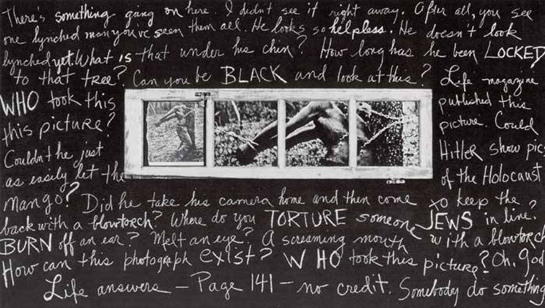 There's something going on here. I didn't see it right away. After all, you see
one lynched man you've seen them all. He looks so helpless. He doesn't look
lynched yet. What IS that under his chin? How long has he been LOCKED
to that tree? Can you be BLACK and look at this? Life magazine
WHO took this
this picture?
Couldn't he just
as easily let the
published this
picture Could
Hitler show pics
of the Holocaust
man go? Did he take his camera home and then come to keep the
back with a blowtorch? Where do you TORTURE someone JEWS in line.
BURN off an ear? Melt an eye? A screaming mouth with a blowtorch
How can this photograph exist? WHO took this picture? Oh, God
Life answers – Page 141 – no credit. Somebody do something